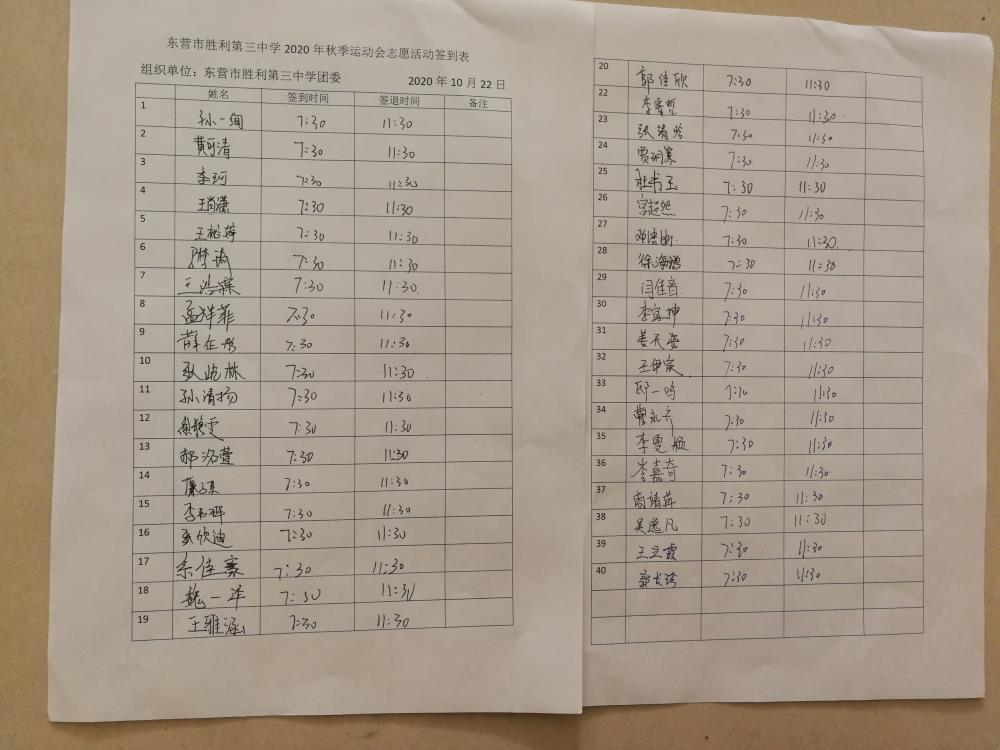 东营市胜利第三中学 2020 年秋季运动会志愿活动签到表
组织单位：东营市胜利第三中学团委 2020 年 10 月 22 日
姓名 签到时间 签退时间 备注
1 孙一 7:30 11:30
2 黄可清 7:30 11:30
3 李珂 7:30 11:30
4 王潇 7:30 11:30
5 王裕婷 7:30 11:30
6 7:30 11:30
7 王浩霖 7:30 11:30
8 孟祥菲 7:30 11:30
9 薛 7:30 11:30
10 林 7:30 11:30
11 孙清扬 7:30 11:30
12 雯 7:30 11:30
13 郝洺萱 7:30 11:30
14 7:30 11:30
15 李 7:30 11:30
16 欣迪 7:30 11:30
17 佳豪 7:30 11:30
18 魏一泽 7:30 11:30
19 王雅涵 7:30 11:30
20 郭佳欣 7:30 11:30
22 李哲 7:30 11:30
23 张 7:30 11:30
24 贾 7:30 11:30
25 杜书玉 7:30 11:30
26 宫超然 7:30 11:30
27 7:30 11:30
28 徐海鹏 7:30 11:30
29 闫佳音 7:30 11:30
30 李宜坤 7:30 11:30
31 姜天姿 7:30 11:30
32 王伊宸 7:30 11:30
33 邱一鸣 7:30 11:30
34 7:30 11:30
35 李雯颖 7:30 11:30
36 岑嘉奇 7:30 11:30
37 商婧茹 7:30 11:30
38 吴逸凡 7:30 11:30
39 王立霞 7:30 11:30
40 郭长 7:30 11:30